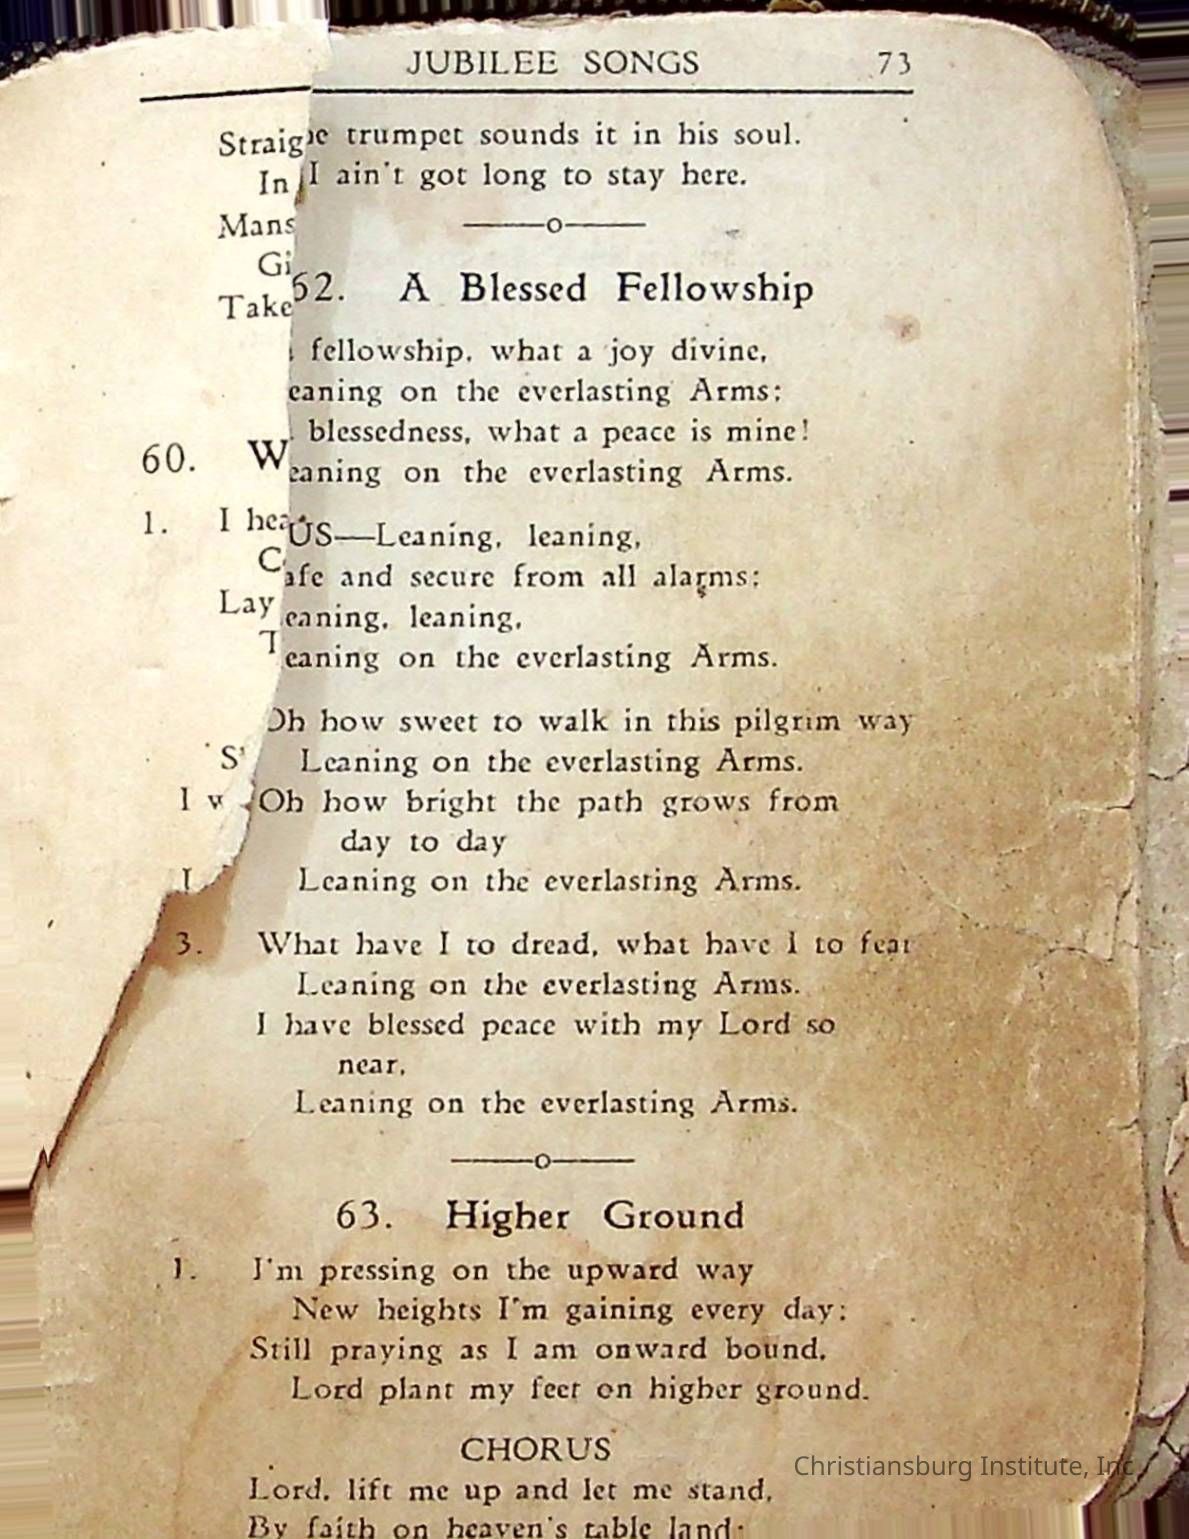 JUBILEE SONGS 73
trumpet sounds it in his soul.
I ain't got long to stay here.
62. A Blessed Fellowship
fellowship, what a joy divine,
eaning on the everlasting Arms;
blessedness, what a peace is mine!
eaning on the everlasting Arms.
US—Leaning, leaning,
afe and secure from all alarms;
eaning, leaning,
eaning on the everlasting Arms.
Oh how sweet to walk in this pilgrim way
Leaning on the everlasting Arms.
Oh how bright the path grows from
day to day
Leaning on the everlasting Arms.
3. What have I to dread, what have I to fear
Leaning on the everlasting Arms.
I have blessed peace with my Lord so
near,
Leaning on the everlasting Arms.
63. Higher Ground
1. I'm pressing on the upward way
New heights I'm gaining every day;
Still praying as I am onward bound,
Lord plant my feet on higher ground.
CHORUS
Lord, lift me up and let me stand,
By faith on heaven's table land;
Straig
In
Mans
Gi
Take
60. W
1. I hea
C
Lay
T
S
I w
I
Christiansburg Institute, Inc.